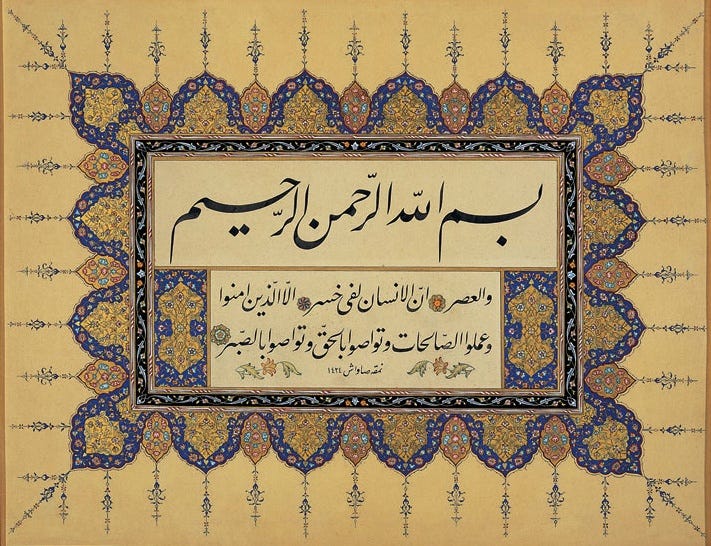 بسم الله الرّحمن الرّحيم
والعصر انّ الانسان لفى خسر الّا الّذين امنوا
وعملوا الصّالحات وتواصوا بالحقّ وتواصوا بالصّبر
نمقه صاواش ١٤٢٤